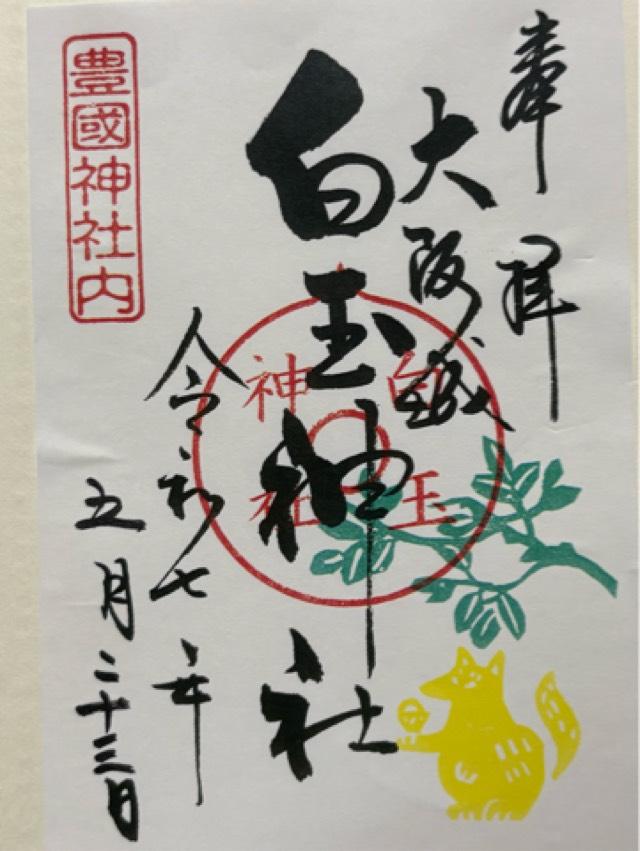 奉拝
大阪城
白玉神社
白玉
神社
令和七年
五月二十三日
豊國神社内